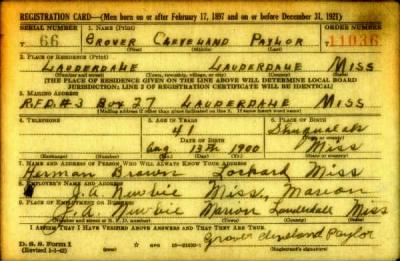 REGISTRATION CARD—(Men born on or after February 17, 1897 and on or before December 31, 1921)
SERIAL NUMBER 1. NAME (Print) ORDER NUMBER
T 66 Grover Cleveland Paylor 11036
(First) (Middle) (Last)
2. PLACE OF RESIDENCE (Print)
Lauderdale Lauderdale Miss
(Number and street) (Town, township, village, or city) (County) (State)
[THE PLACE OF RESIDENCE GIVEN ON THE LINE ABOVE WILL DETERMINE LOCAL BOARD
JURISDICTION; LINE 2 OF REGISTRATION CERTIFICATE WILL BE IDENTICAL]
3. MAILING ADDRESS
R.F.D. #3 Box 27 Lauderdale Miss
4. TELEPHONE 5. AGE IN YEARS 6. PLACE OF BIRTH
41 Shuqualak
DATE OF BIRTH
Aug 13th 1900 Miss
(Exchange) (Number) (Mo.) (Day) (Yr.) (State or country)
7. NAME AND ADDRESS OF PERSON WHO WILL ALWAYS KNOW YOUR ADDRESS
Herman Brown Lockard Miss
8. EMPLOYER'S NAME AND ADDRESS
Miss, Marion
9. PLACE OF EMPLOYMENT OR BUSINESS
Marion Lauderdale Miss
(Number and street or R. F. D. number) (Town) (County) (State)
I AFFIRM THAT I HAVE VERIFIED ABOVE ANSWERS AND THAT THEY ARE TRUE.
D. S. S. Form 1
(Revised 1-1-42) (over) Grover Cleveland Paylor
(Registrant's signature)